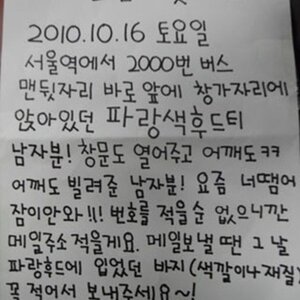 2010.10.16 토요일
서울역에서 2000번 버스
맨뒷자리 바로앞에 창가자리에
앉아있던 파랑색후드티
남자분! 창문도 열어주고 어깨도ㅋㅋ
어깨도 빌려준 남자분! 요즘 너땜에
잠이안와!! 번호를 적을순 없으니깐
메일주소 적을게요. 메일보낼 땐 그 날
파랑후드에 입었던 바지(색깔이나재질)
꼭 적어서 보내주세요~!